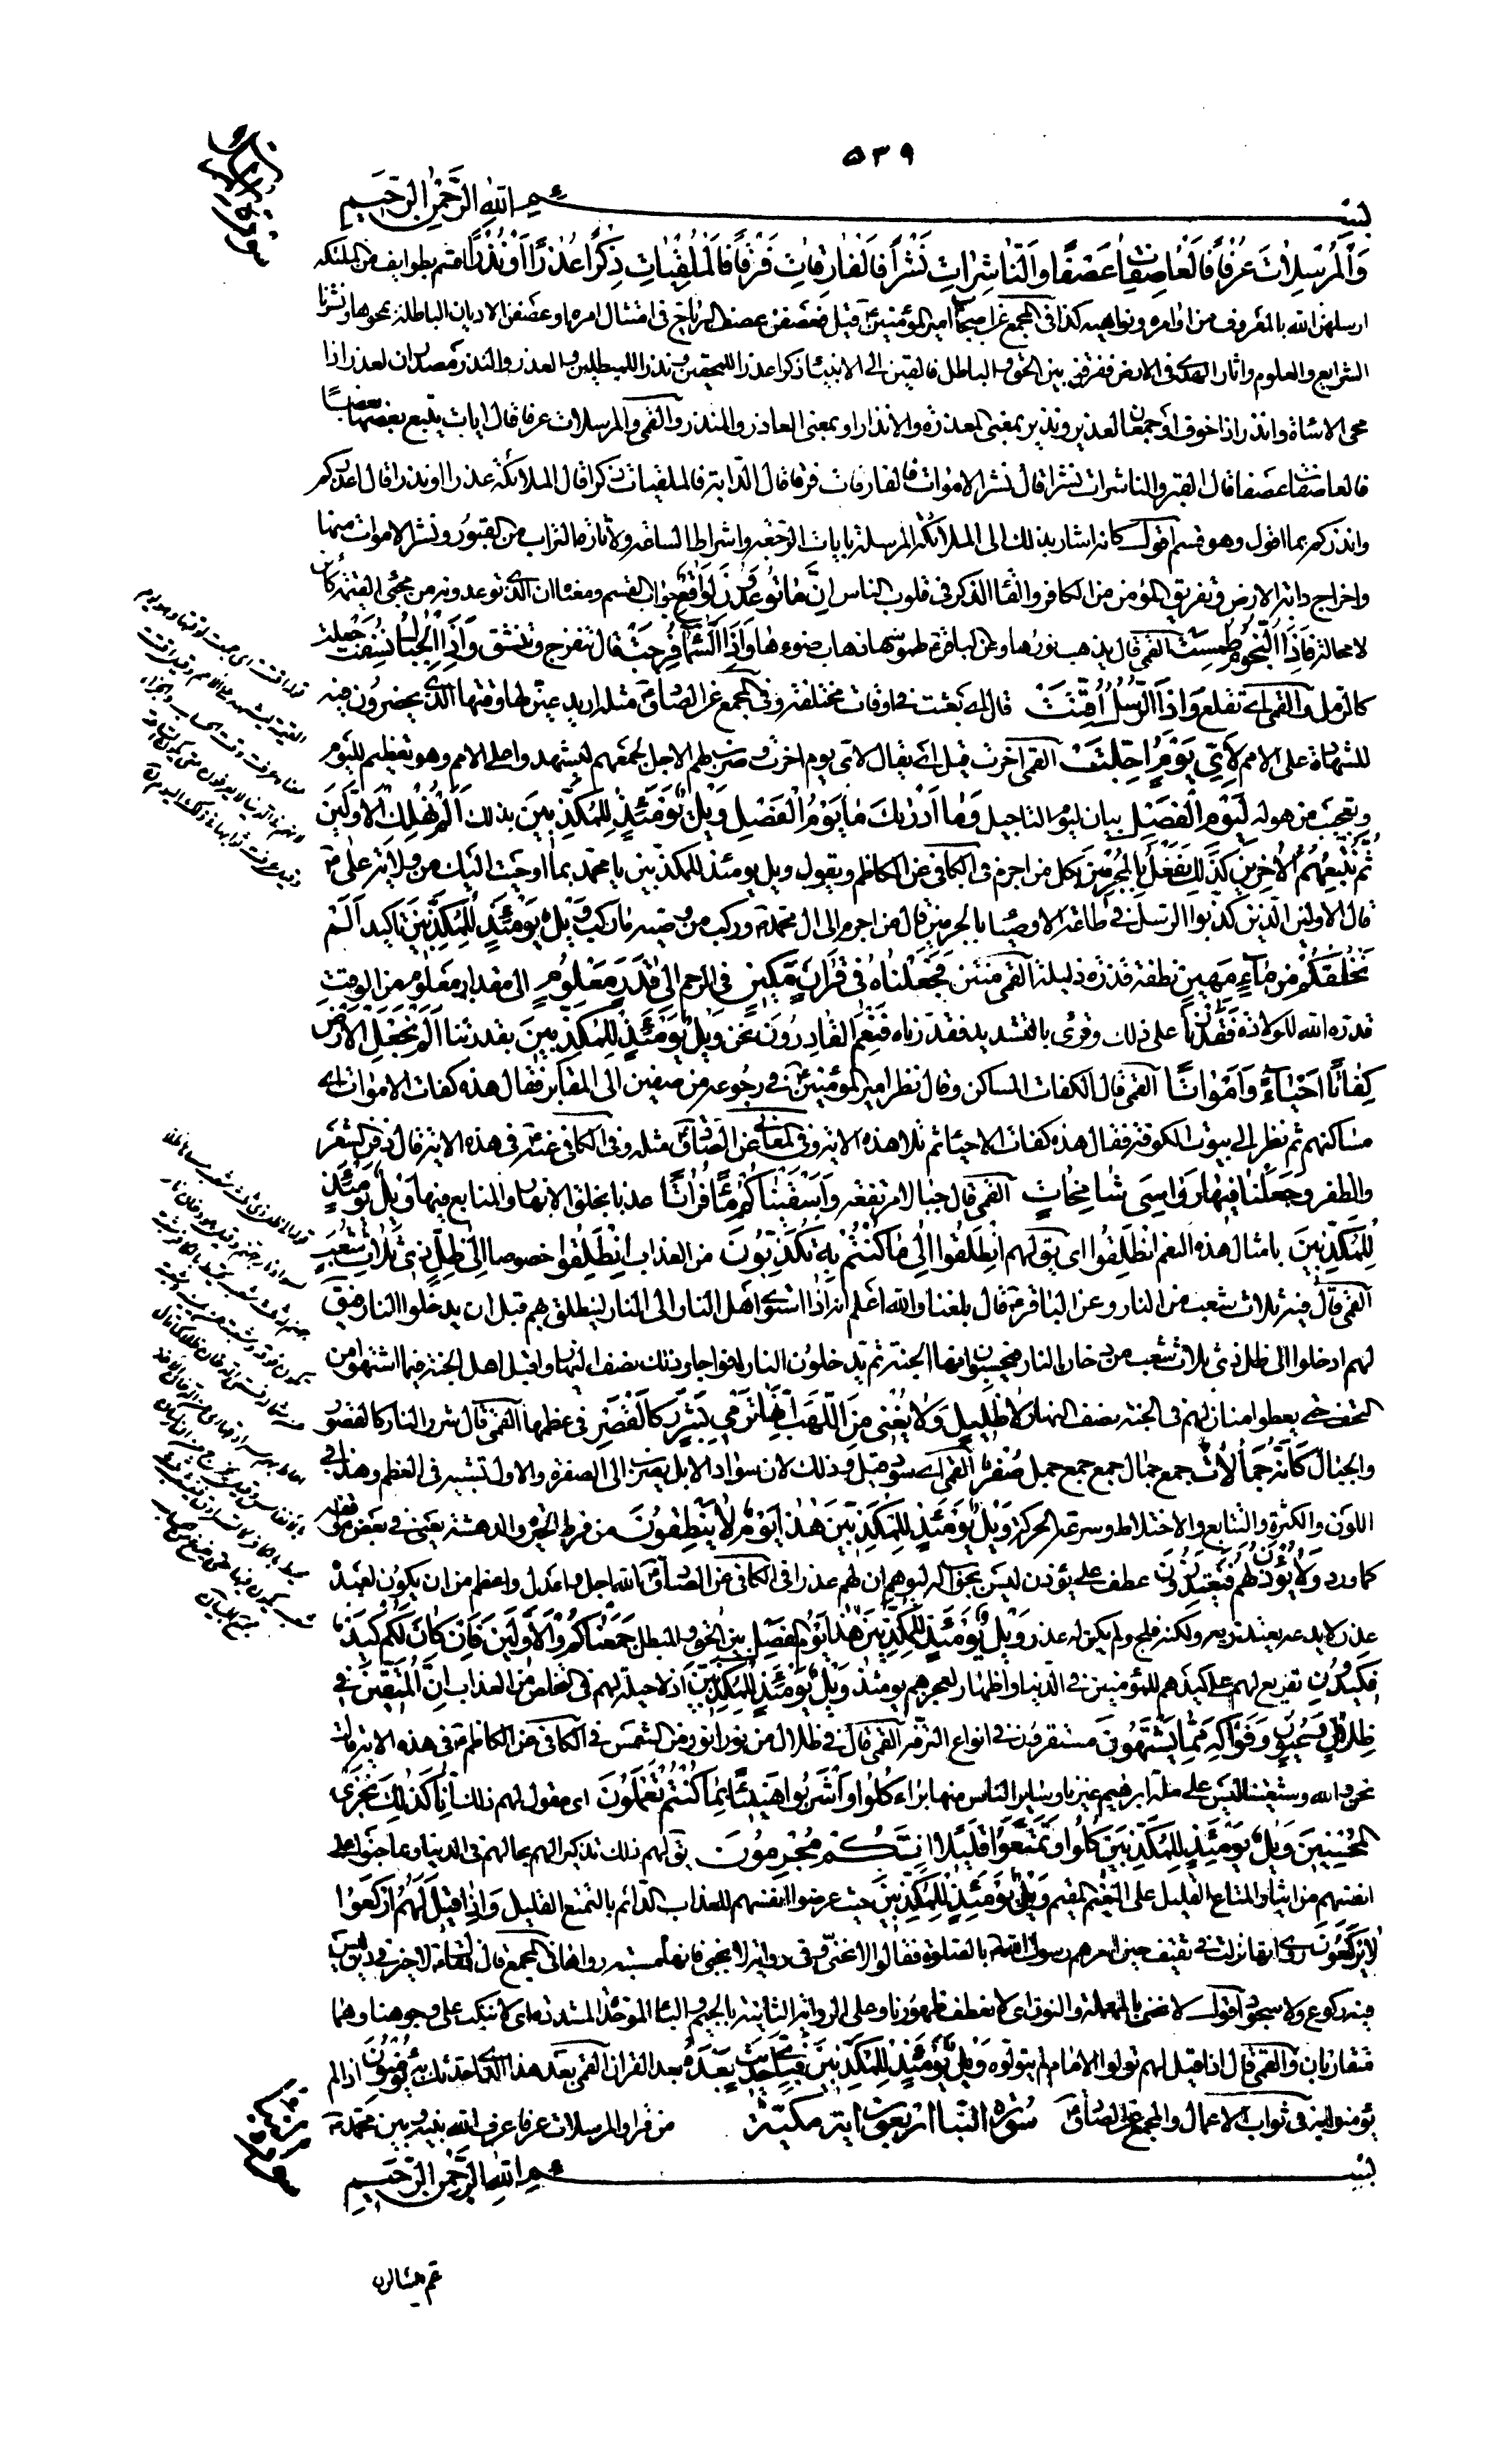 ٥٣٩
بسم الله الرحمن الرحيم
وَالْمُرْسَلاتِ عُرْفاً فَالْعاصِفاتِ عَصْفاً وَالنّاشِراتِ نَشْراً فَالْفارِقاتِ فَرْقاً فَالْمُلْقِياتِ ذِكْراً عُذْراً أَوْ نُذْراً اقسم بطوايف من الملئكة
ارسلهن الله بالمعروف من اوامره ونواهيه كذا في المجمع عن اصحابنا امير المؤمنين ع قيل فعصفن عصف الرياح في امتثال امره او عصفن الاديان الباطلة بمحوها ونشرنا
الشرايع والعلوم واثار الهدى في الارض ففرقن بين الحق والباطل فالقين الى الانبياء ذكرا عذرا للمحقين ونذرا للمبطلين والعذر والنذر مصدران لعذر اذا
محى الاساءة وانذر اذا خوف او جمعان لعذير ونذير بمعنى المعذرة والانذار او بمعنى العاذر والمنذر والقمي والمرسلات عرفا قال ايات يتبع بعضها بعضا
فالعاصفات عصفا قال القبر والناشرات نشرا قال نشر الاموات فالفارقات فرقا قال الدابة فالملقيات ذكرا قال الملائكة عذرا او نذرا قال اعذركم
وانذركم بما اقول وهو قسم اقول كانه اشار بذلك الى الملائكة المرسلة بايات الرجعة واشراط الساعة ولاثارة التراب من القبور ونشر الاموات منها
واخراج دابة الارض وتفريق المؤمن من الكافر والقاء الذكر في قلوب الناس إِنَّ ما تُوعَدُونَ لَواقِعٌ جواب القسم ومعناه ان الذي توعدونه من مجئ القيمة كائن
لا محالة فَإِذَا النُّجُومُ طُمِسَتْ القمي قال يذهب نورها وعن الباقر ع طموسها ذهاب ضوءها وَإِذَا السَّماءُ فُرِجَتْ قال تنفرج وتنشق وَإِذَا الْجِبالُ نُسِفَتْ جعلت
كالرمل والقمي اي تقلع وَإِذَا الرُّسُلُ أُقِّتَتْ قال اي بعثت في اوقات مختلفة وفي المجمع عن الصادق ع مثله اريد عين لها وقتها الذي يحضرون فيه
للشهادة على الامم لِأَيِّ يَوْمٍ أُجِّلَتْ القمي اخرت قيل اي يقال لاي يوم اخرت وضرب لهم الاجل لجمعهم ليشهدوا على الامم وهو تعظيم لليوم
وتعجيب من هوله لِيَوْمِ الْفَصْلِ بيان ليوم التاجيل وَما أَدْراكَ ما يَوْمُ الْفَصْلِ وَيْلٌ يَوْمَئِذٍ لِلْمُكَذِّبِينَ بذلك أَلَمْ نُهْلِكِ الْأَوَّلِينَ
ثُمَّ نُتْبِعُهُمُ الْآخِرِينَ كَذلِكَ نَفْعَلُ بِالْمُجْرِمِينَ بكل من اجرم في الكافي عن الكاظم ع يقول ويل يومئذ للمكذبين يا محمد بما اوحيت اليك من ولاية علي ع
قال الاولين الذين كذبوا الرسل في طاعة الاوصياء بالمجرمين قال من اجرم الى ال محمد ص وركب من وصيه ما ركب وَيْلٌ يَوْمَئِذٍ لِلْمُكَذِّبِينَ تاكيد أَلَمْ
نَخْلُقْكُمْ مِنْ ماءٍ مَهِينٍ نطفة قذرة ذليلة القمي منتن فَجَعَلْناهُ فِي قَرارٍ مَكِينٍ في الرحم إِلى قَدَرٍ مَعْلُومٍ الى مقدار معلوم من الوقت
قدره الله للولادة فَقَدَرْنا على ذلك وقرئ بالتشديد فقدرناه فَنِعْمَ الْقادِرُونَ نحن وَيْلٌ يَوْمَئِذٍ لِلْمُكَذِّبِينَ بقدرتنا أَلَمْ نَجْعَلِ الْأَرْضَ
كِفاتاً أَحْياءً وَأَمْواتاً القمي قال الكفات المساكن وقال نظر امير المؤمنين ع في رجوعه من صفين الى المقابر فقال هذه كفات الاموات اي
مساكنهم ثم نظر الى بيوت الكوفة فقال هذه كفات الاحياء ثم تلا هذه الاية وفي المعاني عن الصادق ع مثله وفي الكافي عنه ع في هذه الاية قال دفن الشعر
والظفر وَجَعَلْنا فِيها رَواسِيَ شامِخاتٍ القمي قال جبالا مرتفعة وَأَسْقَيْناكُمْ ماءً فُراتاً عذبا بخلق الانهار والمنابع فيها وَيْلٌ يَوْمَئِذٍ
لِلْمُكَذِّبِينَ بامثال هذه النعم انْطَلِقُوا اي يق لهم انطلقوا إِلى ما كُنْتُمْ بِهِ تُكَذِّبُونَ من العذاب انْطَلِقُوا خصوصا إِلى ظِلٍّ ذِي ثَلاثِ شُعَبٍ
القمي قال فيه ثلاث شعب من النار وعن الباقر ع قال بلغنا والله اعلم انه اذا استوى اهل النار الى النار لينطلق بهم قبل ان يدخلوا النار فيق
لهم ادخلوا الى ظل ذي ثلاث شعب من دخان النار فيحسبون انها الجنة ثم يدخلون النار افواجا وذلك نصف النهار واقبل اهل الجنة فيما اشتهوا من
التحف حتى يعطوا منازلهم في الجنة نصف النهار لا ظَلِيلٍ وَلا يُغْنِي مِنَ اللَّهَبِ إِنَّها تَرْمِي بِشَرَرٍ كَالْقَصْرِ في عظمها القمي قال شرر النار كالقصور
والجبال كَأَنَّهُ جِمالاتٌ جمع جمال جمع جمل صُفْرٌ القمي اي سود قيل وذلك لان سواد الابل يضرب الى الصفرة والاول تشبيه في العظم وهذا في
اللون والكثرة والتتابع والاختلاط وسرعة الحركة وَيْلٌ يَوْمَئِذٍ لِلْمُكَذِّبِينَ هذا يَوْمُ لا يَنْطِقُونَ من فرط الحيرة والدهشة يعني في بعض مواقفه
كما ورد وَلا يُؤْذَنُ لَهُمْ فَيَعْتَذِرُونَ عطف على يؤذن ليس بجواب له ليوهم ان لهم عذرا في الكافي عن الصادق ع الله اجل واعدل واعظم من ان يكون لعبده
عذر لا يدعه يعتذر به ولكنه فلج ولم يكن له عذر وَيْلٌ يَوْمَئِذٍ لِلْمُكَذِّبِينَ هذا يَوْمُ الْفَصْلِ بين المحق والمبطل جَمَعْناكُمْ وَالْأَوَّلِينَ فَإِنْ كانَ لَكُمْ كَيْدٌ
فَكِيدُونِ تقريع لهم على كيدهم للمؤمنين في الدنيا واظهار لعجزهم يومئذ وَيْلٌ يَوْمَئِذٍ لِلْمُكَذِّبِينَ اذ لا حيلة لهم في التخلص من العذاب إِنَّ الْمُتَّقِينَ فِي
ظِلالٍ وَعُيُونٍ وَفَواكِهَ مِمّا يَشْتَهُونَ مستقرون في انواع الترفه القمي قال في ظلال من نور انور من الشمس في الكافي عن الكاظم ع في هذه الاية قال
نحن والله وشيعتنا ليس على ملة ابرهيم غيرنا وساير الناس منها براء كُلُوا وَاشْرَبُوا هَنِيئاً بِما كُنْتُمْ تَعْمَلُونَ اي مقول لهم ذلك إِنّا كَذلِكَ نَجْزِي
الْمُحْسِنِينَ وَيْلٌ يَوْمَئِذٍ لِلْمُكَذِّبِينَ كُلُوا وَتَمَتَّعُوا قَلِيلاً إِنَّكُمْ مُجْرِمُونَ يق لهم ذلك تذكيرا لهم بحالهم في الدنيا وبما جنوا على
انفسهم من ايثار المتاع القليل على النعيم المقيم وَيْلٌ يَوْمَئِذٍ لِلْمُكَذِّبِينَ حيث عرضوا انفسهم للعذاب الدائم بالتمتع القليل وَإِذا قِيلَ لَهُمُ ارْكَعُوا
لا يَرْكَعُونَ روي انها نزلت في ثقيف حين امرهم رسول الله ص بالصلوة فقالوا لا نحني وفي رواية لا نجبي فانها مسبة رواها في المجمع قال فقال ص لا خير في دين ليس
فيه ركوع ولا سجود اقول لا نحني بالمهملة والنون اي لا نعطف ظهورنا وعلى الرواية الثانية بالجيم والباء الموحدة المشددة اي لا ننكب على وجوهنا وهما
متقاربان والقمي قال اذا قيل لهم تولوا الامام لم يتولوه وَيْلٌ يَوْمَئِذٍ لِلْمُكَذِّبِينَ فَبِأَيِّ حَدِيثٍ بَعْدَهُ بعد القران القمي بعد هذا الذي احدثك به يُؤْمِنُونَ اذا لم
يؤمنوا به في ثواب الاعمال والمجمع عن الصادق ع من قرأ والمرسلات عرفا عرف الله بينه وبين محمد ص
سورة النبأ اربعون اية مكية
بسم الله الرحمن الرحيم
عم يتسائلون